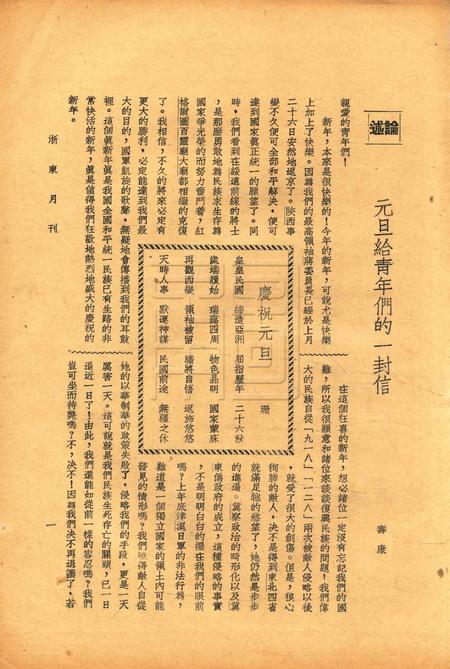 論述
元旦給青年們的一封信
壽康
親愛的青年們！
新年，本來是很快樂的！今年的新年，可說尤是快樂
上加上了快樂。因為我們的最高領袖蔣委員長已經於上月
二十六日安然地返京了。陝西事
變不久便可全部和平解決，便可
達到國家眞正統一的願望了。同
時，我們看到在綏遠前線的將士
，是那麼勇敢地為民族求生存為
國家爭光榮的而努力奮鬥着，紅
格爾圖百靈廟大廟都相繼的克復
了。我相信，不久的將來必定有
更大的勝利，必定能達到我們最
大的目的，國軍凱旋的歌聲，無疑地會傳播到我們的耳鼓
裡。這個眞新年眞是我國全國和平統一民族已有生路的非
常快活的新年，眞是值得我們狂歡地熱烈地盛大的慶祝的
新年。
在這個狂喜的新年，想必諸位一定沒有忘記我們的國
難，所以我很願意和諸位來談談復興民族的問題！我們偉
大的民族自從「九一八」「一二八」兩次被敵人侵略以後
，就受了很大的創傷。但是，狼心
狗肺的敵人，決不是得到東北四省
就滿足牠的慾望了，牠仍然是步步
的進逼。冀察政治的畸形化以及冀
東僞政府的成立，這種侵略的事實
，不是明明白白的擺在我們的眼前
嗎？上年底津滬日軍的非法行為，
難道是一個獨立國家的領土內可能
發見的情形嗎？我們曉得敵人自從
牠的以華制華的政策失敗了，侵略我們的手段，更是一天
厲害一天。這可說就是我們民族生死存亡的關頭，已一日
逼近一日了！由此，我們還能如從前一樣的容忍嗎？我們
豈可坐而待斃嗎？不，決不！因為我們決不再退讓了，若
慶祝元旦
珊
皇皇民國 締造亞洲 屈指歷年 二十六秋
歲端履始 瑞靄四周 物色品明 國家蒙庥
再觀西變 領袖被留 驕將自悟 返斾悠悠
天時人事 默運神謀 民國前途 無疆之休
浙東月刊
一